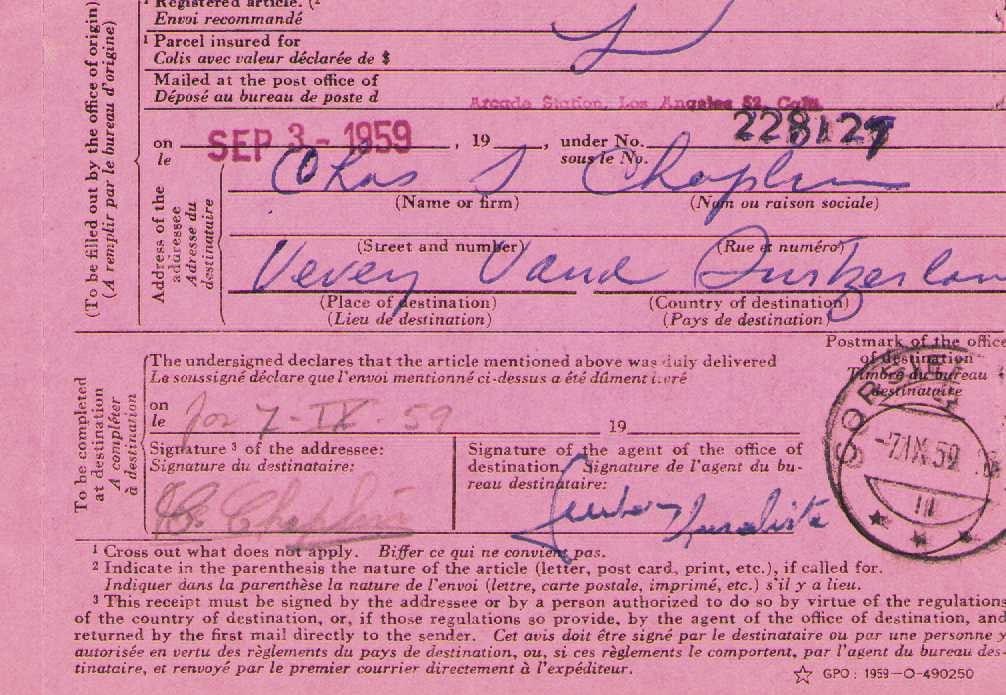 ¹ Registered article. (²
Envoi recommandé
¹ Parcel insured for
Colis avec valeur déclarée de $
Mailed at the post office of
Déposé au bureau de poste d
Arcade Station, Los Angeles 52, Calif.
on SEP 3 - 1959, 19____, under No. 228127
le sous le No.
Chas S Chaplin
(Name or firm) (Nom ou raison sociale)
(Street and number) (Rue et numéro)
Vevey Vaud Switzerlan
(Place of destination) (Country of destination)
(Lieu de destination) (Pays de destination)
(To be filled out by the office of origin)
(A remplir par le bureau d'origine)
Address of the
addressee
Adresse du
destinataire
Postmark of the office
of destination
Timbre du bureau
destinataire
The undersigned declares that the article mentioned above was duly delivered
Le soussigné déclare que l'envoi mentionné ci-dessus a été dûment livré
on
le 7-IX-59 19
Signature ³ of the addressee:
Signature du destinataire:
C. Chaplin
Signature of the agent of the office of
destination. Signature de l'agent du bu-
reau destinataire:
To be completed
at destination
A compléter
à destination
-7.IX.59
¹ Cross out what does not apply. Biffer ce qui ne convient pas.
² Indicate in the parenthesis the nature of the article (letter, post card, print, etc.), if called for.
Indiquer dans la parenthèse la nature de l'envoi (lettre, carte postale, imprimé, etc.) s'il y a lieu.
³ This receipt must be signed by the addressee or by a person authorized to do so by virtue of the regulations
of the country of destination, or, if those regulations so provide, by the agent of the office of destination, and
returned by the first mail directly to the sender. Cet avis doit être signé par le destinataire ou par une personne y
autorisée en vertu des règlements du pays de destination, ou, si ces règlements le comportent, par l'agent du bureau des-
tinataire, et renvoyé par le premier courrier directement à l'expéditeur.
GPO : 1959—O-490250